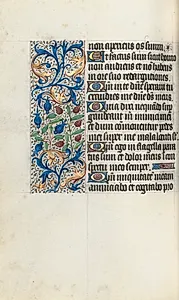 non aperiens os suum
Et factus sum sicut homo
non audiens et non habens
in ore suo redargutiones
Qm in te dne speravi tu
exaudies me dne deus meus
Quia dixi ne quando sup
gaudeant in inimici mei
et dum commoventur pedes
mei super me magna locuti st
Qm ego in flagella para
tus sum et dolor meus in con
spectu meo semper
Qm iniquitatem meam
annunciabo et cogitabo pro